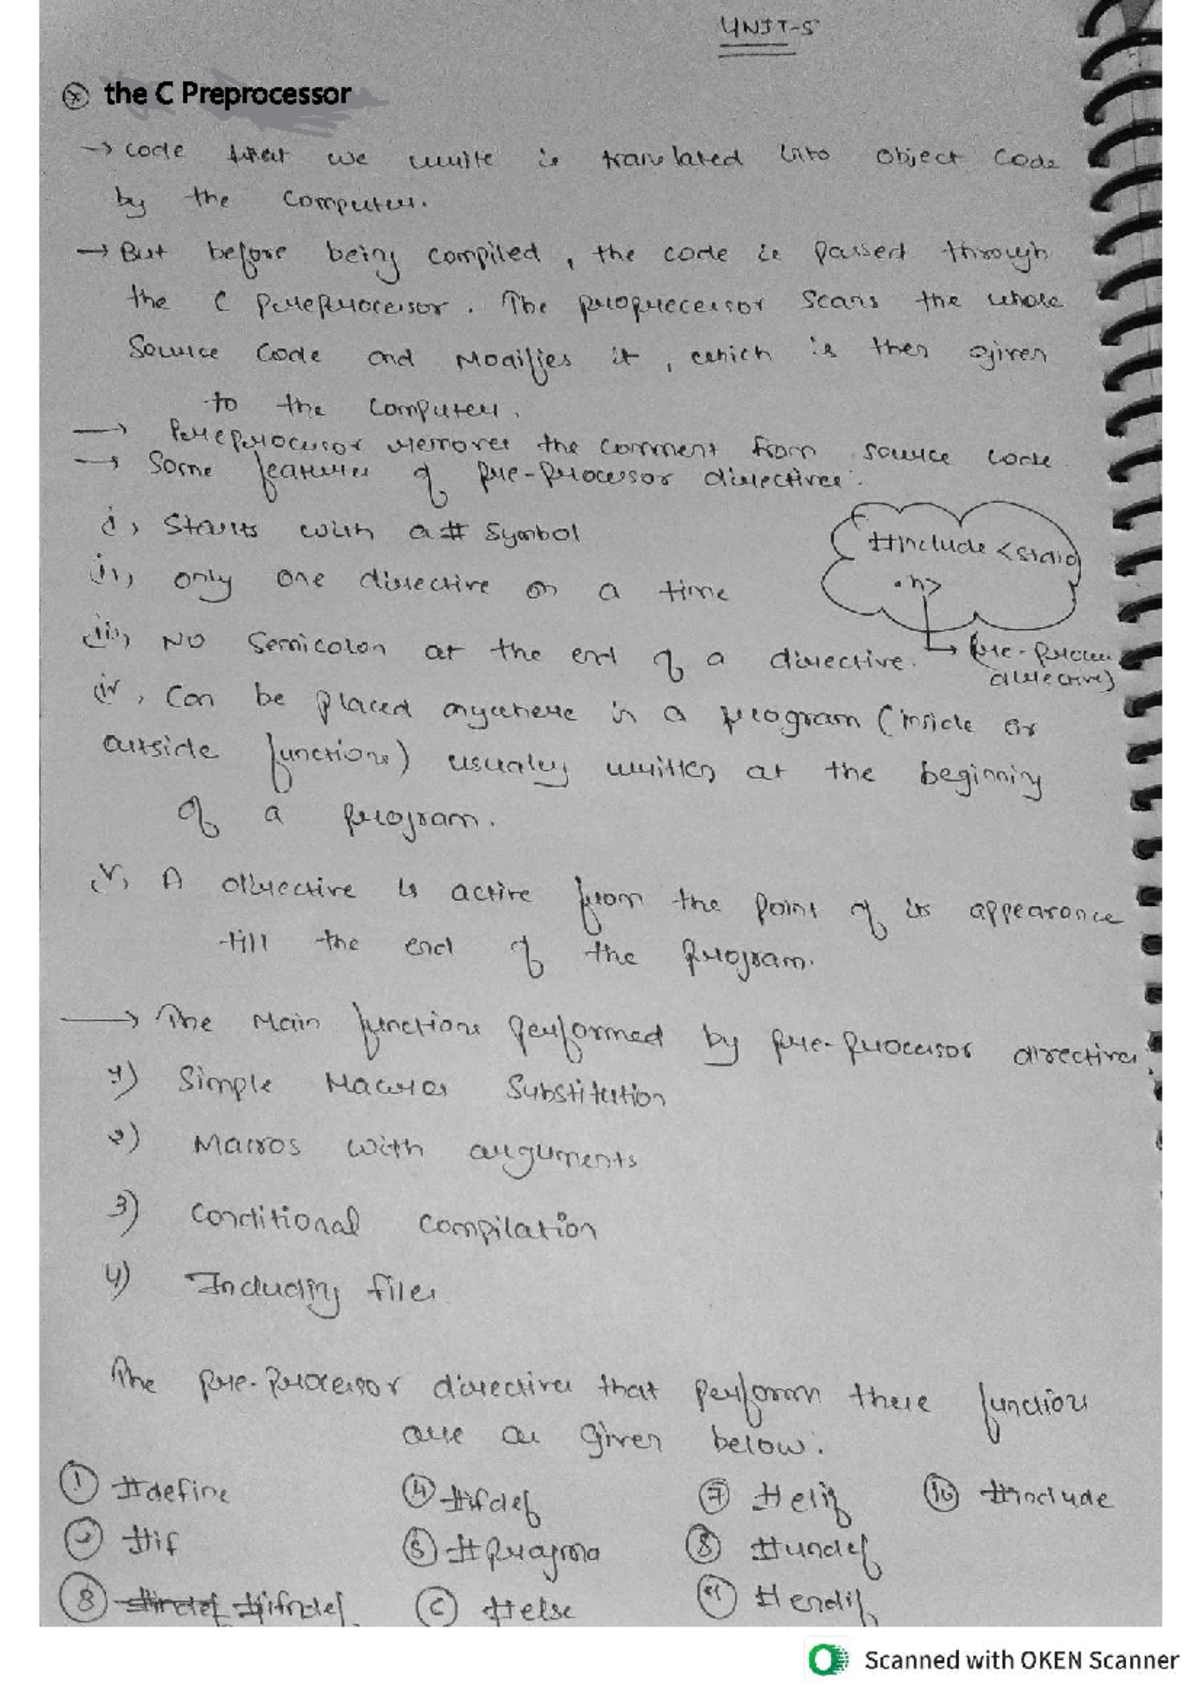 UNIT-5
the C Preprocessor
→ Code that we write is translated into object code
by the Computer.
→ But before being compiled, the code is passed through
the C Preprocessor. The proprecessor Scans the whole
Source Code and Modifies it, which is then given
to the computer.
→ Preprocessor removes the comment from source code
→ Some features of pre-processor directives:
i, Starts with a # Symbol
#include <stdio
.h>
ii, only one directive on a time
iii, No Semicolon at the end of a directive.
directive)
iv, Can be placed anywhere in a program (inside or
outside functions) usualey written at the beginning
of a program.
v, A directive is active from the point of its appearance
till the end of the program.
→ The Main functions performed by pre-processor directives.
1) Simple Macros Substitution
2) Macros with arguments
3) Conditional Compilation
4) Including files
The pre-processor directives that perform these functions
are as given below:
① #define ④ #ifdef ⑦ #elif ⑩ #include
② #if ⑤ #pragma ⑧ #undef
#ifndef #else #endif
Scanned with OKEN Scanner